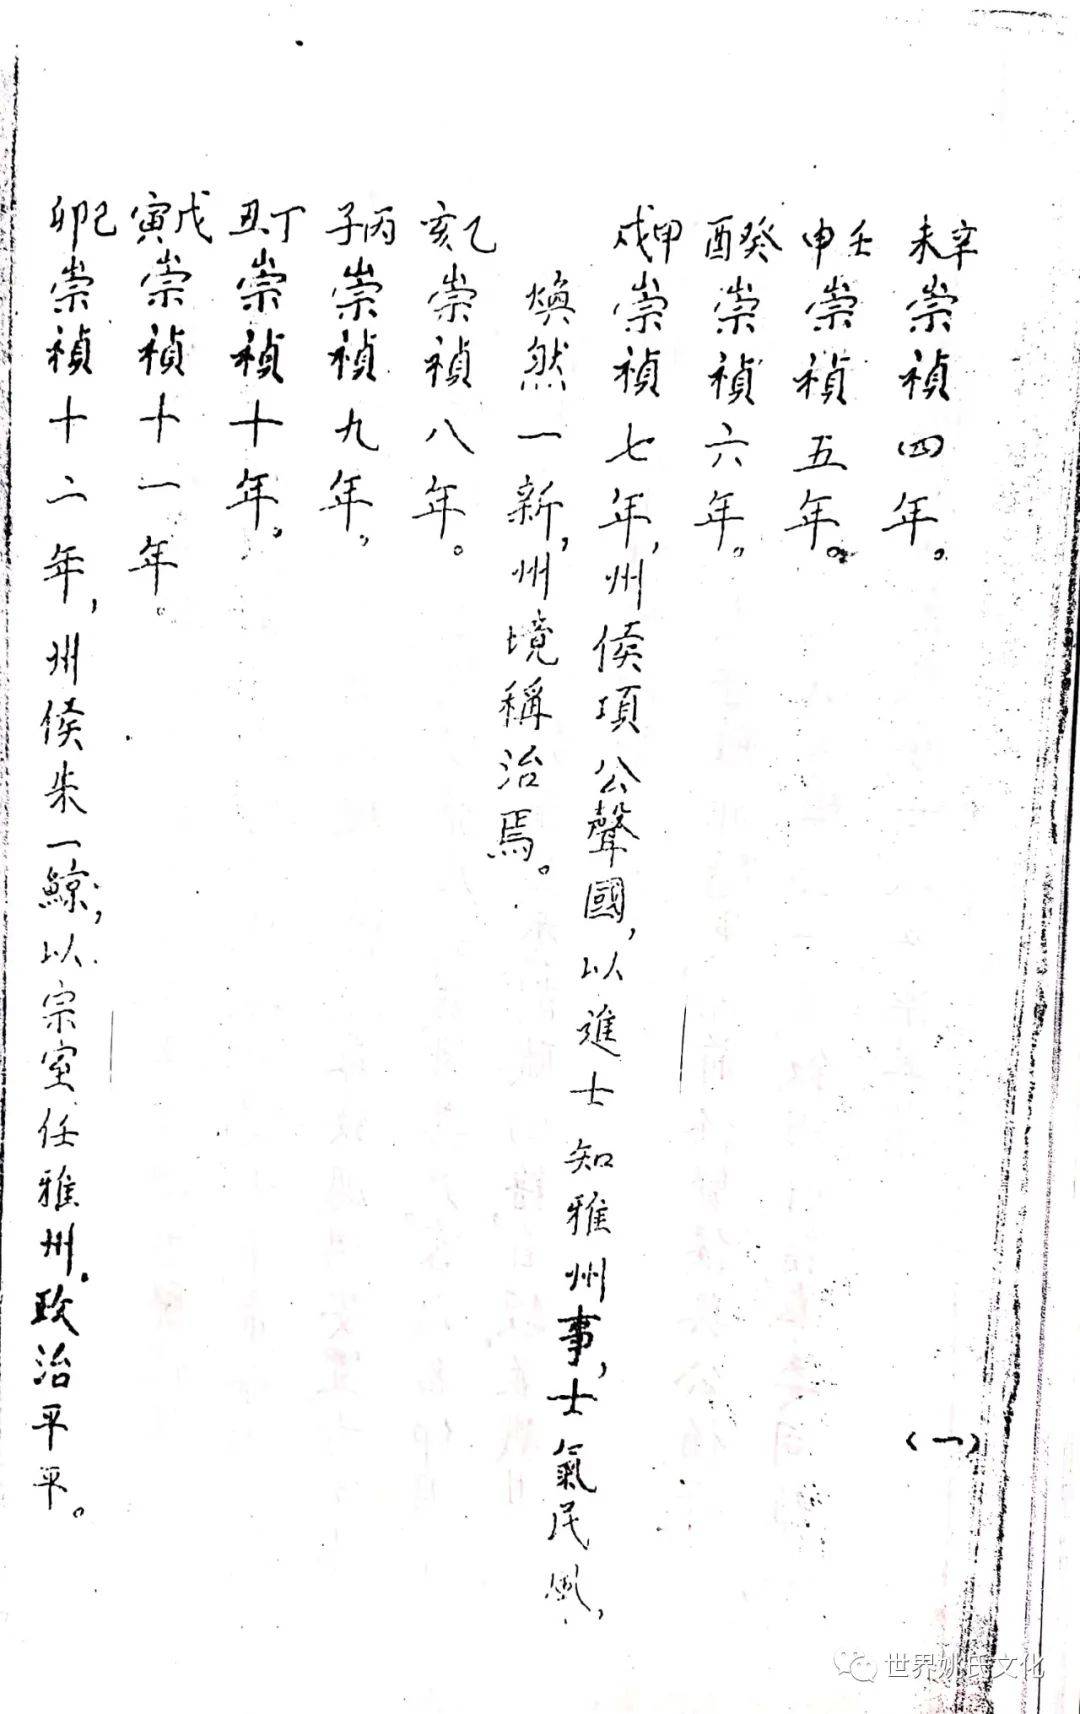 辛未崇禎四年。
壬申崇禎五年。
癸酉崇禎六年。
甲戌崇禎七年，州侯項公聲國，以進士知雅州事，士氣民風，
煥然一新，州境稱治焉。
乙亥崇禎八年。
丙子崇禎九年，
丁丑崇禎十年。
戊寅崇禎十一年。
己卯崇禎十二年，州侯朱一鯨，以宗室任雅州，政治平平。
（一）
世界姚氏文化